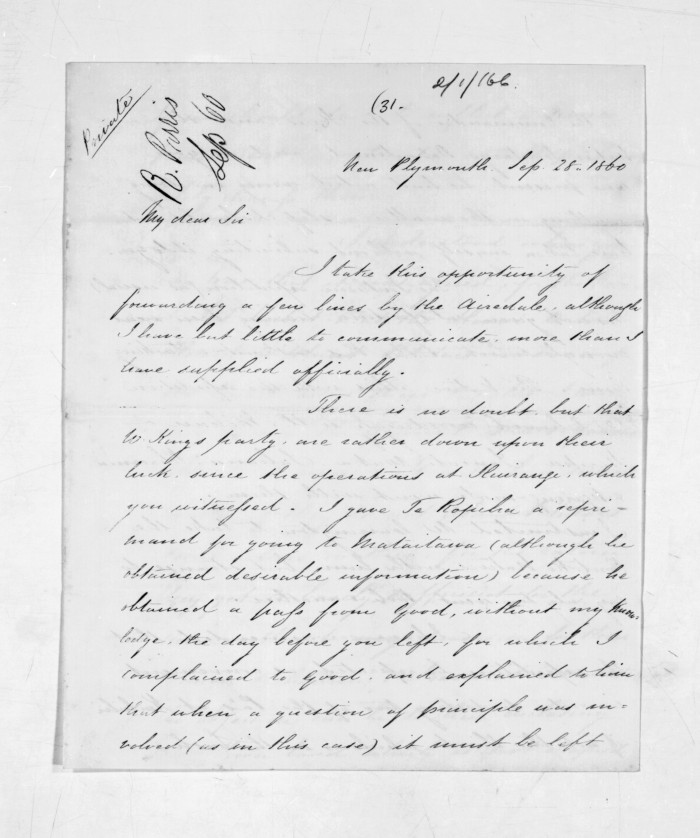 Private
R. Parris
Sep 60
(31-
2/1/166.
New Plymouth. Sep. 28. 1860
My dear Sir
I take this opportunity of
forwarding a few lines by the Airedale, although
I have but little to communicate, more than I
have supplied officially.
There is no doubt, but that
W Kings party, are rather down upon their
luck, since the operations at Huirangi, which
you witnessed. I gave Te Ropiha a repri-
mand for going to Mataitawa (although he
obtained desirable information) because he
obtained a pass from Good, without my know-
ledge, the day before you left, for which I
complained to Good, and explained to him
that when a question of principle was in-
volved (as in this case) it must be left